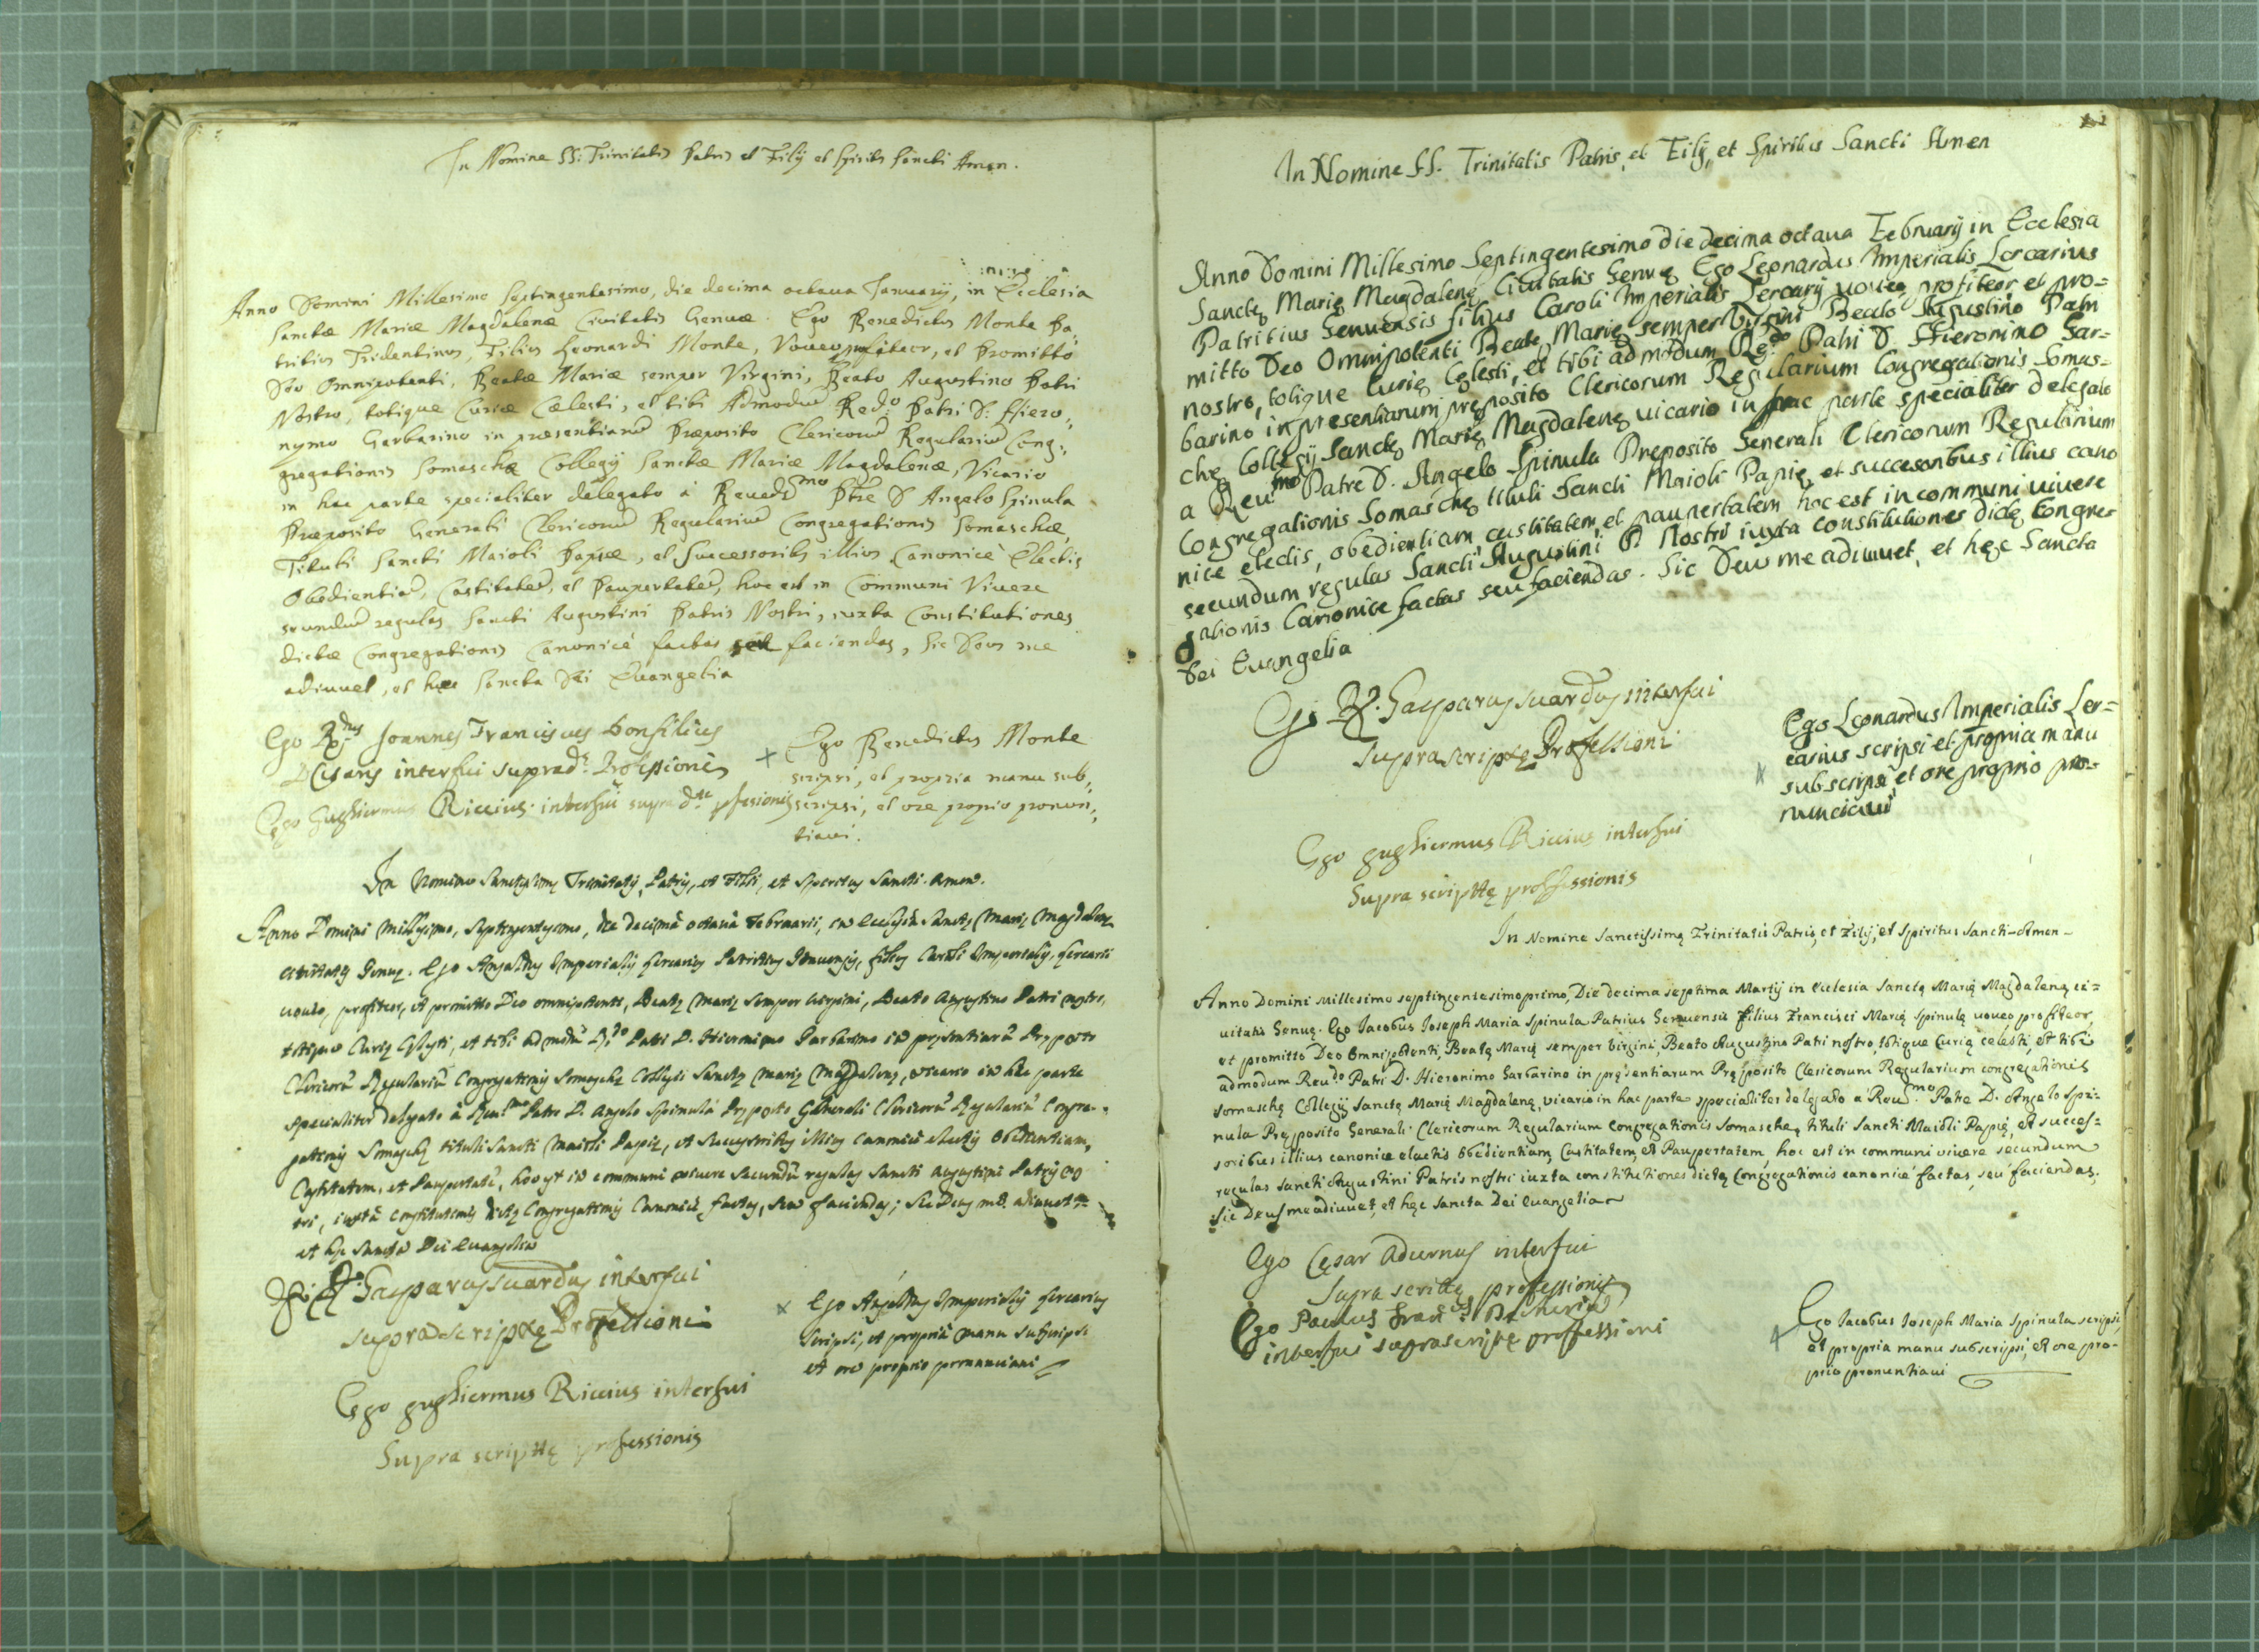 In Nomine SS: Trinitatis Patris et Filij et Spiritus Sancti Amen.
Anno Domini Millesimo Septingentesimo, die decima octaua Ianuarij, in Ecclesia
Sanctæ Mariæ Magdalenæ Ciuitatis Genuæ. Ego Benedictus Monte Pa„
tritius Tridentinus, Filius Leonardi Monte, Voueo profiteor, et Promitto
Deo Omnipotenti, Beatæ Mariæ semper Virgini, Beato Augustino Patri
Nostro, totique Curiæ Cælesti, et tibi Admodũ Red:o Patri D: Hiero„
nymo Garbarino in præsentiarũ Præposito Clericorũ Regulariũ Cong„
gregationis Somaschæ Collegij Sanctæ Mariæ Magdalenæ, Vicario
in hac parte specialiter delegato à Reuerdmo Ptre D Angelo Spinula
Præposito Generali Clericorũ Regulariũ Congregationis Somaschæ,
Tituli Sancti Maioli Papiæ, et Successoribs illius Canonicè Electis
Obedientiã, Castitatẽ, et Paupertatẽ, hoc est in Communi Viuere
secundũ regulas Sancti Augustini Patris Nostri, iuxta Constitutiones
dictæ Congregationis Canonicè factas seu faciendas, Sic Deus me
adiuuet, et hæc Sancta Dei Euangelia
Ego Joannes Franciscus Bonfilius
interfui suprad: Professionis
Ego Gughiermus Riccius interfui supra dtæ pfesionis
+ Ego Benedictus Monte
scripsi, et propria manu sub„
scripsi, et ore propio pronun„
tiaui.
In Nomine Sanctissimę Trinitatis, Patris, et Filii, et Spiritus Sancti. Amen.
Anno Domini Millesimo, Septingentesimo, die decimâ octauâ Februarii, in ecclesia Sanctę Marię Magdalenę
ciuitatis Genuę. Ego Imperialis Lercarius Patritius Genuensis, filius Caroli Imperialis Lercarii
uoueo, profiteor, et promitto Deo omnipotenti, Beatę Marię semper Virgini, Beato Augustino Patri nostro,
totique Curię Cęlesti, et tibi admodũ Rdo Patri D. Hieronimo Garbarino in pręsentiarũ Pręposito
Clericorũ Regulariũ Congregationis Somaschę Collegii Sanctę Marię Magdalenę, vicario in hac parte
specialiter delegato â Reu:mo Patre D. Angelo Spinulâ Pręposito Generali Clericorũ Regulariũ Congre-
gationis Somaschę tituli Sancti Maioli Papię, et successoribus illius canonicè electis Obedientiam,
Castitatem, et Paupertatẽ, hoc est in communi viuere secundũ regulas Sancti Augustini Patris nos
tri, iuxtâ constitutionis dictę Congregationis Canonicè factas, seu faciendas; Sic Deus me adiuuet
et hęc Sancta Dei Euangelia
Gasparus suardus interfui
suprascriptę Professioni
Ego gughiermus Riccius interfui
Supra scripttę professionis
x Ego Imperialis Lercarius
scripsi, et propriâ manu subscripsi
et ore proprio pronunciaui
In Nomine SS. Trinitatis Patris, et Filij, et Spiritus Sancti Amen
Anno Domini Millesimo Septingentesimo die decima octaua Februarij in Ecclesia
Sanctę Marię Magdalenę Ciuitatis Genuę Ego Leonardus Imperialis Lercarius
Patritius Genuensis filius Caroli Imperialis Lercarij uoueo, profiteor et pro=
mitto Deo Omnipotenti Beatę Marię semper Virgini Beato Agustino Patri
nostro, totique Curię Cęlesti, et tibi admodum Rę:do Patri D. Hieronimo Gar=
barino in presentiarum pręposito Clericorum Regularium Congregationis Somas=
chę Collegij Sanctę Marię Magdalenę uicario in hac parte specialiter delegato
a Reu:mo Patre D. Angelo Spinula Preposito Generali Clericorum Regularium
Congregationis Somaschę tituli Sancti Maioli Papię, et succesoribus illius cano
nice electis, obedientiam castitatem, et paupertatem hoc est in communi uiuere
secundum regulas Sancti Augustini P. Nostri iuxta constitutiones dictę Congre
gationis Canonice factas seu faciendas. Sic Deus me adiuuet, et hęc Sancta
Dei Euangelia
Gasparus suardus interfui
suprascriptę Professioni
Ego Leonardus Imperialis Ler=
carius scripsi et propria manu
subscripsi et ore proprio pro=
nunciaui
Ego gughiermus Riccius interfui
Supra scripttę proffessionis
In Nomine Sanctissimę Trinitatis Patris, et Filij, et Spiritus Sancti-Amen-
Anno Domini Millesimo septingentesimo primo, Die decima septima Martij in Ecclesia Sanctę Marię Magdalenę ci=
uitatis Genuę. Ego Jacobus Ioseph Maria Spinula Patrius Genuensis Filius Francisci Marię Spinulę uoueo profiteor,
et promitto Deo Omnipotenti, Beatę Marię semper Virgini, Beato Augustino Patri nostro, totique Curię celesti, et tibi
admodum Reu:do Patri D. Hieronimo Garbarino in pręsentiarum Pręposito Clericorum Regularium congregationis
somaschę Collegij Sanctę Marię Magdalenę, vicario in hac parte specialiter delegato a Reud:mo Patre D. Angelo Spi=
nula Pręposito Generali Clericorum Regularium Congregationis Somaschę, tituli Sancti Maioli Papię, et succes=
soribus illius canonice electis Obedientiam, Castitatem, et Paupertatem, hoc est in communi viuere secundum
regulas Sancti Augustini Patris nostri iuxta constitutiones dictę Congregationis canonicè factas, seu faciendas,
Sic Deus me adiuuet, et hęc Sancta Dei Euangelia
Ego Cęsar Adurnus interfui
supra scrittę professionis
Ego Paulus Franus
interfui suprascriptę proffessioni
Ego Jacobus Ioseph Maria Spinula scripsi,
et propria manu subscripsi, et ore pro-
prio pronuntiaui